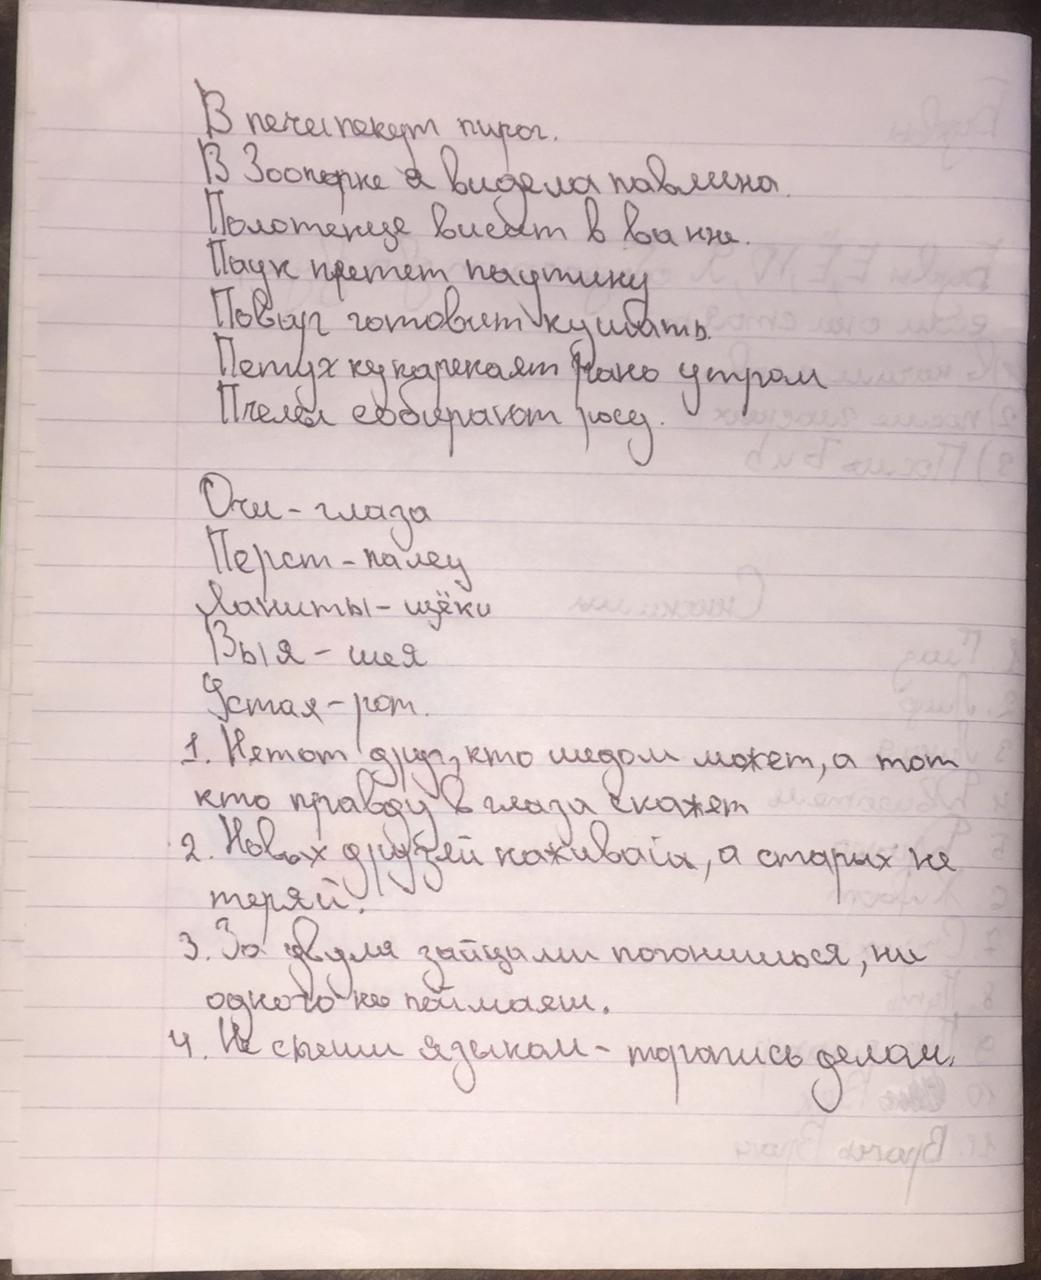 В печи пекут пирог.
В Зоопарке я видела павлина.
Полотенце висит в ванне.
Паук плетет паутину
Повар готовит кушать.
Петух кукарекает рано утром
Пчелы собирают росу.
Очи - глаза
Перст - палец
Ланиты - щёки
Выя - шея
Устая - рот.
1. Не тот друг, кто медом мажет, а тот
кто правду в глаза скажет
2. Новых друзей наживай, а старых не
теряй.
3. За двумя зайцами погонишься, ни
одного не поймаеш.
4. Не спеши языком - торопись делом.